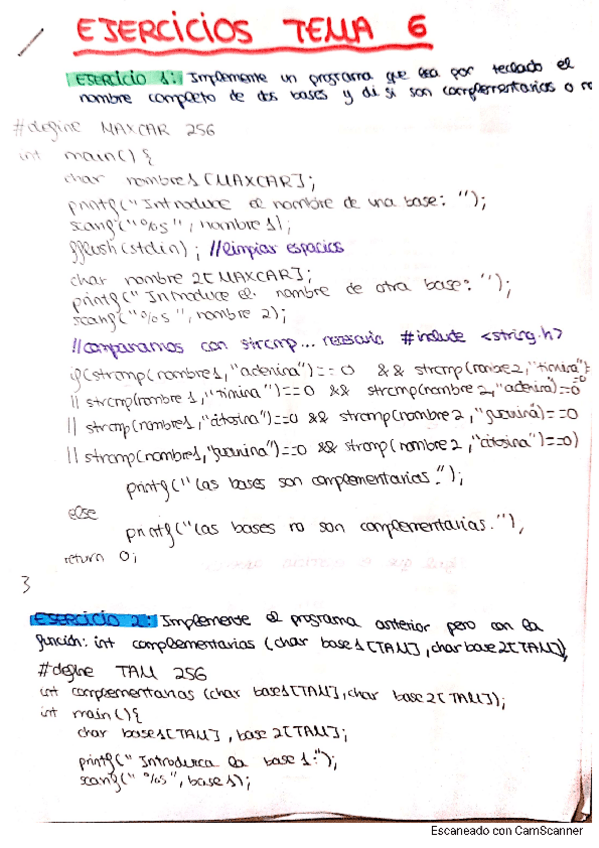 EJERCICIOS TEMA 6
EJERCICIO 1: Implemente un programa que lea por teclado el
nombre completo de dos bases y di si son complementarias o no
#define MAXCAR 256
int main(){
char nombre1[MAXCAR];
printf("Introduce el nombre de una base: ");
scanf("%s", nombre1);
fflush(stdin); //limpiar espacios
char nombre 2[MAXCAR];
printf("Introduce el nombre de otra base: ");
scanf("%s", nombre 2);
//comparamos con strcmp... necesario #include <string.h>
if(strcmp(nombre1,"adenina")==0 && strcmp(nombre2,"timina")
|| strcmp(nombre1,"timina")==0 && strcmp(nombre2,"adenina)==0
|| strcmp(nombre1,"citosina")==0 && strcmp(nombre2,"guanina)==0
|| strcmp(nombre1,"guanina")==0 && strcmp(nombre2,"citosina")==0)
printf("Las bases son complementarias.");
else
printf("Las bases no son complementarias."),
return 0;
}
EJERCICIO 2: Implemente el programa anterior pero con la
función: int complementarias (char base1[TAM], char base2[TAM]),
#define TAM 256
int complementarias (char base1[TAM], char base2[TAM]);
int main(){
char base1[TAM], base2[TAM];
printf("Introduzca la base 1:");
scanf("%s", base1);
Escaneado con CamScanner